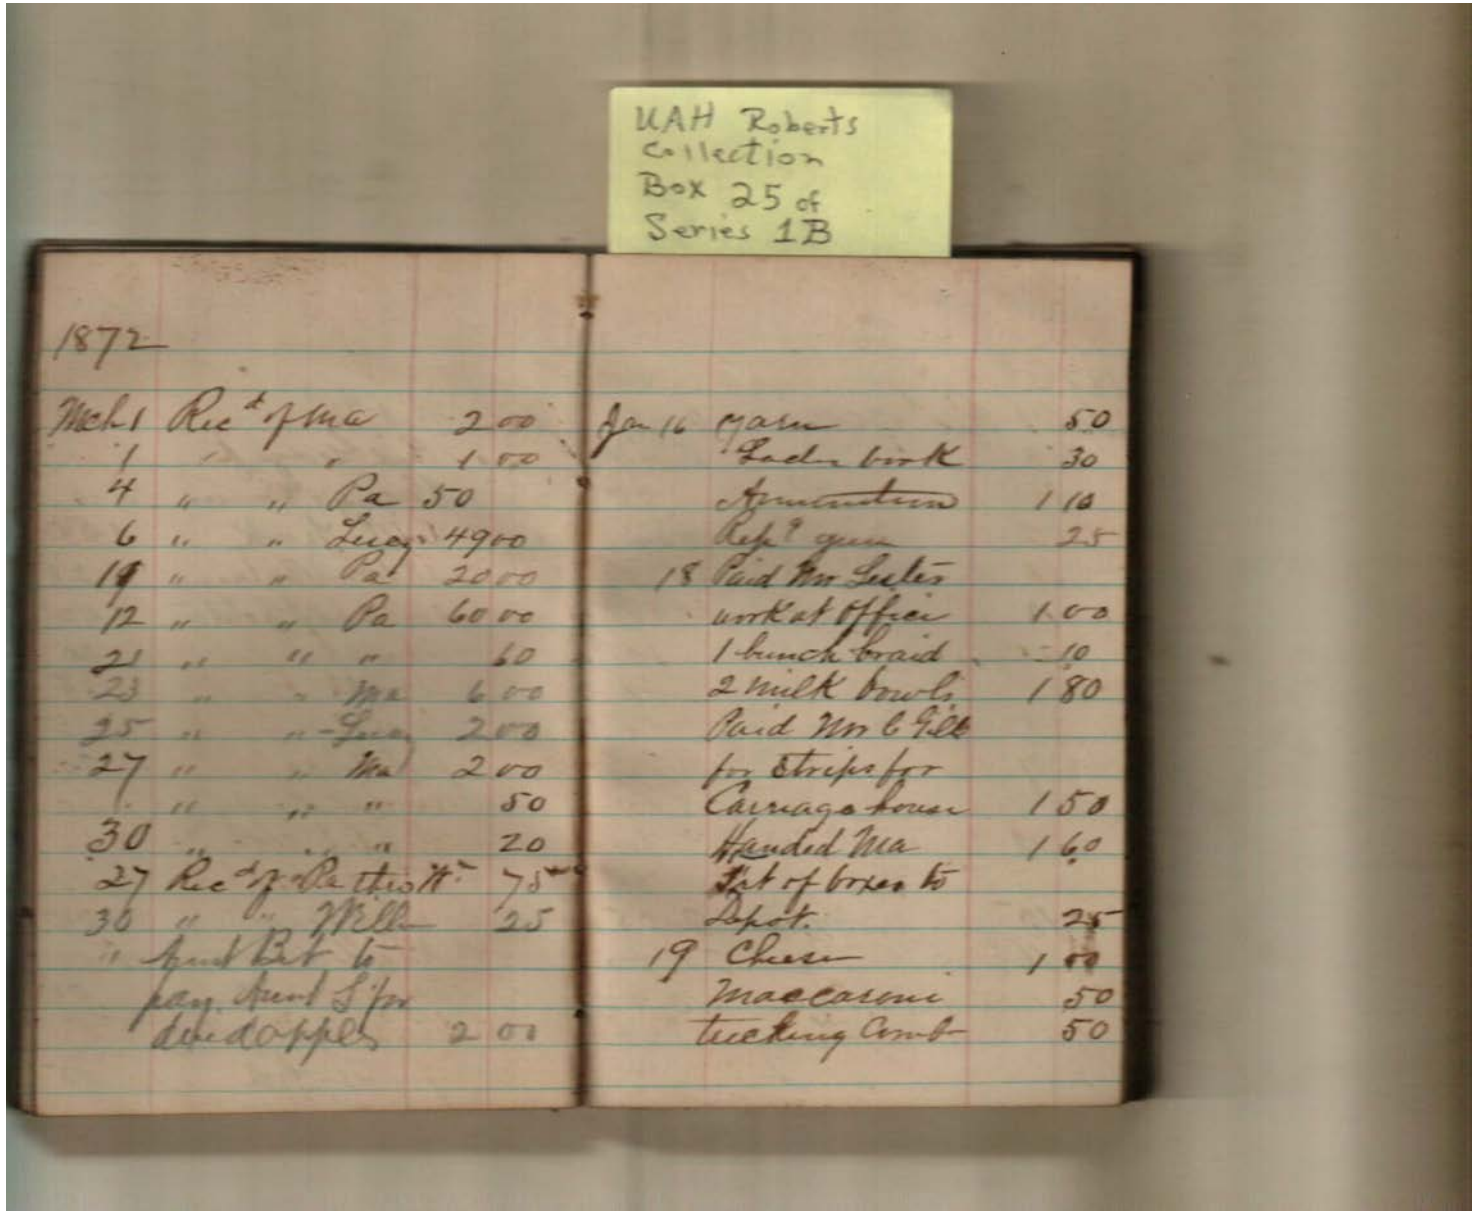 UAH Roberts
Collection
Box 25 of
Series 1B
1872
Mch 1 Recd of Ma 2 00
1 " " 1 00
4 " " Pa 50
6 " " Lucy 49 00
" " Pa 20 00
12 " " Pa 60 00
21 " " " 60
23 " " Ma 6 00
25 " " Lucy 2 00
27 " " Ma 2 00
" " " 50
30 " " " 20
27 Recd of Pa thro 75
30 " " Will 25
" Aunt Bet to
pay Aunt L for
dried apples 2 00
Jan 16 yarn 50
book 30
Ammunition 1 10
gun 25
18 Paid Mr Lester
work at office 1 00
1 bunch braid 10
2 milk bowls 1 80
Paid Mr C
for strips for
Carriage house 1 50
Handed Ma 1 60
of boxes to
Depot. 25
19 Cheese 1 00
Maccaroni 50
tucking Comb 50